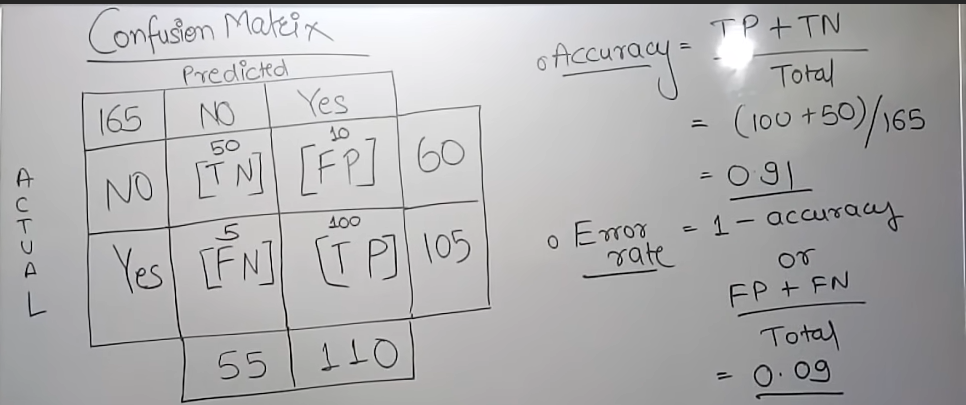 Confusion Matrix
Predicted
165 NO Yes
ACTUAL
NO 50 [TN] 10 [FP] 60
Yes 5 [FN] 100 [TP] 105
55 110
Accuracy = TP + TN
Total
= (100 + 50)/165
= 0.91
Error rate = 1 - accuracy
or
FP + FN
Total
= 0.09